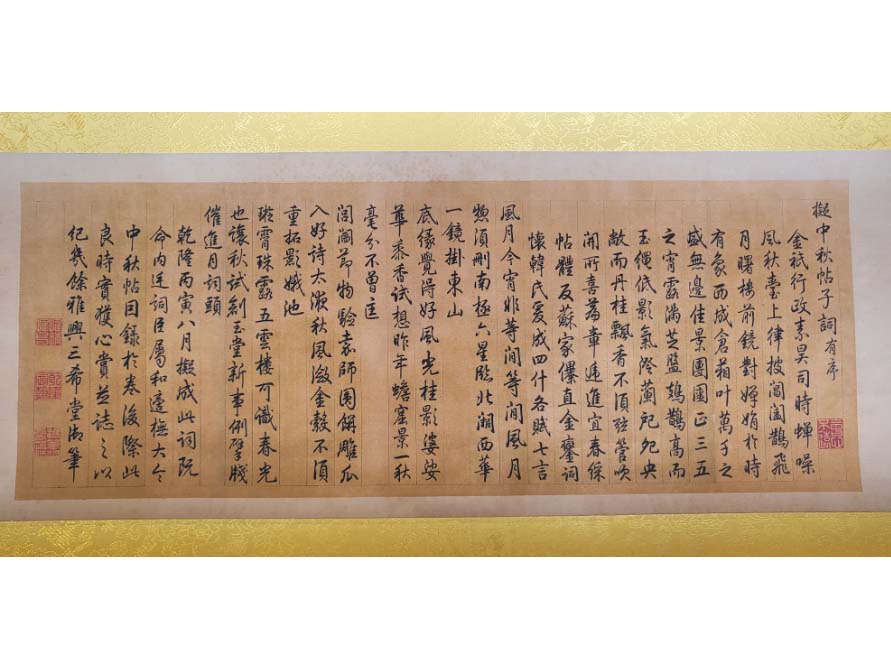 擬中秋帖子詞有序
金祇行政素昊司時蟬噪
風秋臺上律披閶闔鵲飛
月曙樓前鏡對嬋娟於時
有象西成倉箱叶萬子之
盛無邊佳景團圞正三五
之宵露满芝盤鳷鵲高而
玉繩低影氣澄蘭戺戺央
敞而丹桂飄香不須弦管吹
開所喜篇章遞進宜春綵
帖體及蘇家儤直金鑾詞
懷韓氏爰成四什各賦七言
風月今宵非等閒等閒風月
惣須刪南極六星臨北闕西華
一鏡掛東山
底緣覺得好風光桂影婆娑
華黍香試想昨年蟾窟景一秋
毫分不曾
閭闔節物驗袁師圍餅雕瓜
入好詩太液秋風澂金敽不須
重拓影娥池
璇霄珠露五雲樓可識春光
也讓秋試創玉堂新事例擘牋
催進月詞頭
乾隆丙寅八月擬成此詞既
命内廷詞臣屬和適橅大令
中秋帖因錄於卷後際此
良時實獲心賞並誌之以
紀幾餘雅興三希堂御筆